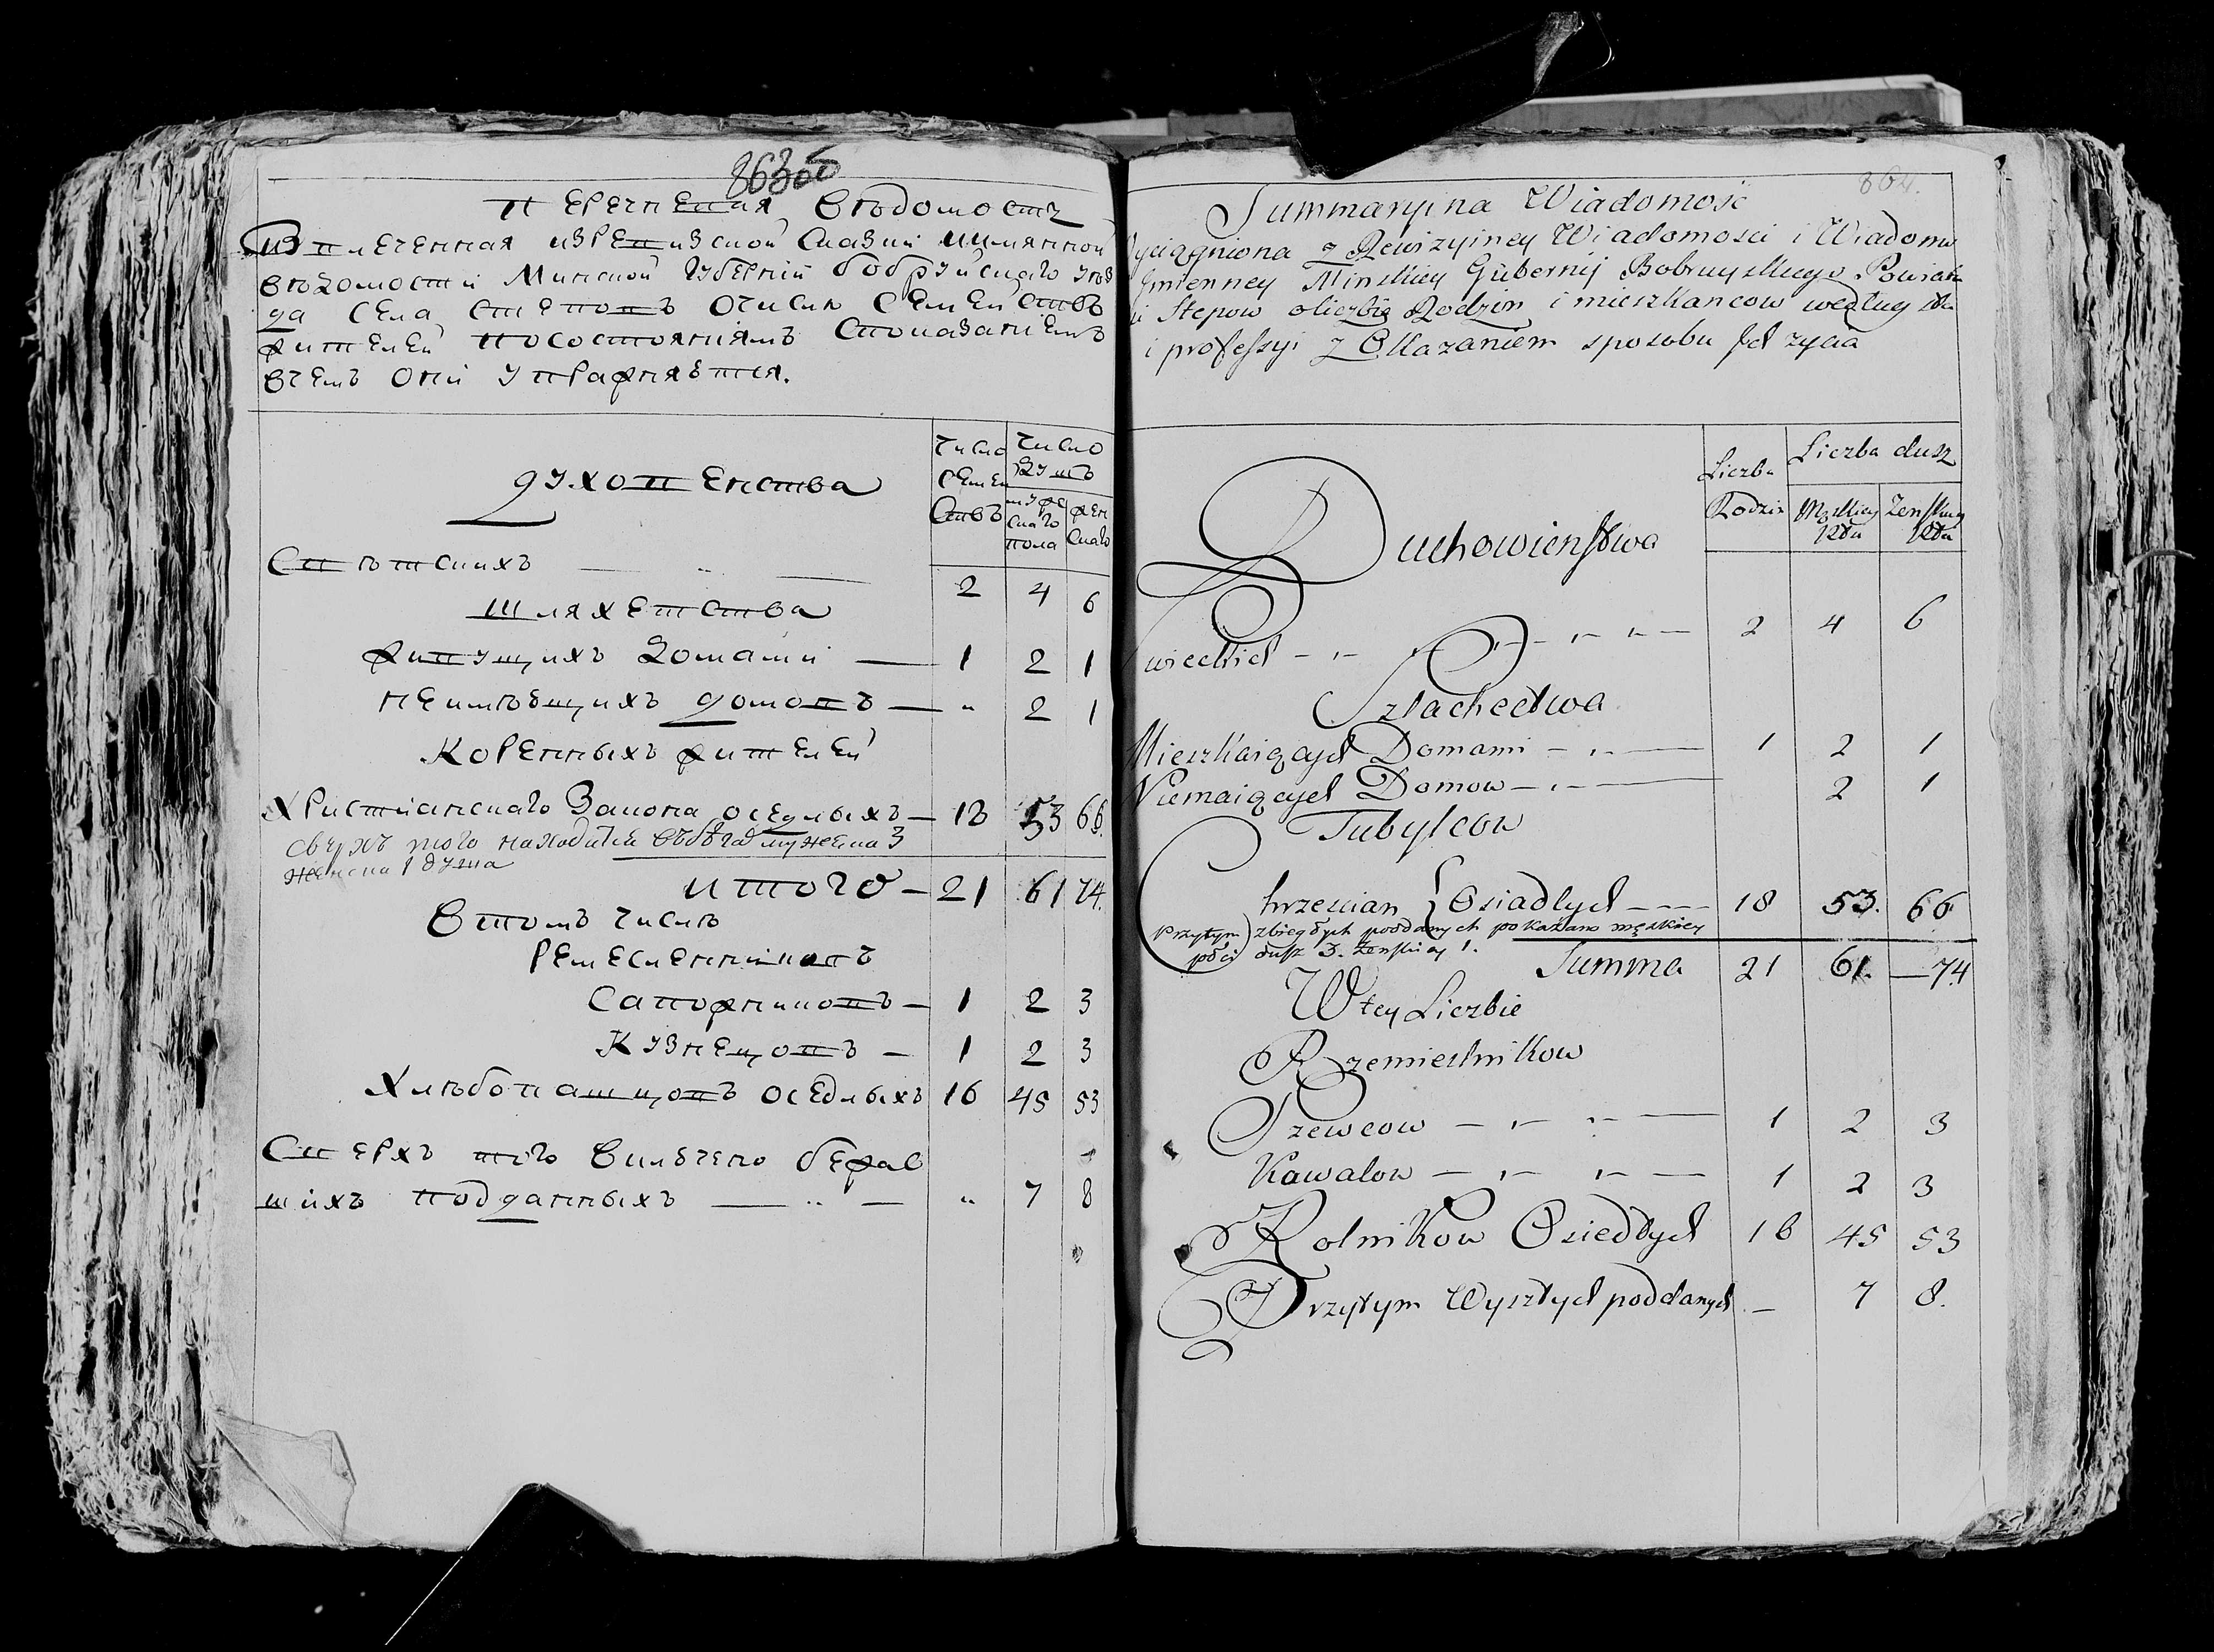 863об
Перечневая вѣдомость
Извлеченная изревизской сказки иимянной
вѣдомости Минской губерніи бобруйскаго уѣз
да села степовъ очисле семействъ
жителей посостояніямъ споказаніемъ
вчемъ они упражняются.
Число семействъ
Число душъ
мужескаго пола
женскаго
духовенства
Свѣтскихъ — „ — 2 4 6
шляхетства
живущихъ домами — 1 2 1
неимѣющихъ домовъ — „ 2 1
Коренныхъ жителей
Христіанскаго Закона оседлыхъ — 18 53 66
сверхъ того находится мужеска 3
женска 1 душа
итого — 21 61 74.
Втомъ числѣ
Ремесленниковъ
Сапожниковъ — 1 2 3
Кузнецовъ — 1 2 3
Хлѣбопашцовъ оседлыхъ 16 45 53
Сверхъ того включено бежав
шихъ подданныхъ — „ — „ 7 8
864.
Summaryina Wiadomość
Wyciągniona z Rewizyiney Wiadomosci i Wiadomo
Imienney Minskiey Gubernij Bobruyskiego Powiatu
Stepow oliczbie Rodzin i mieszkancow według
i professyi z Okazaniem sposobu ich zycia
Liczba Rodzin
Liczba dusz
Męskiey Płci
Zenskiey Płci
Duchowienstwa
Swieckich — „ — „ — 2 4 6
Szlachectwa
Mieszkaiących Domami — „ — 1 2 1
Niemaiących Domow — „ — 2 1
Tubylcow
Chrzescian Osiadłych — 18 53. 66
Przytym zbiegłych poddanych pokazano męskiey
płci dusz 3. Zenskiey 1.
Summa 21 61. — 74
W tey Liczbie
Rzemieslnikow
Szewcow — „ — „ — 1 2 3
Kawalow — „ — „ — 1 2 3
Rolnikow Osiedłych 16 45 53
Przytym Wyszłych poddanych — 7 8.